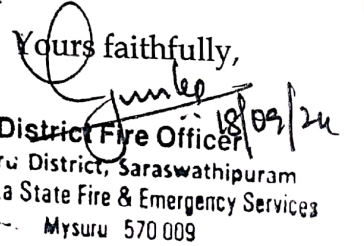 Yours faithfully,
18/09/24
District Fire Officer
ru District, Saraswathipuram
a State Fire & Emergency Services
Mysuru 570 009